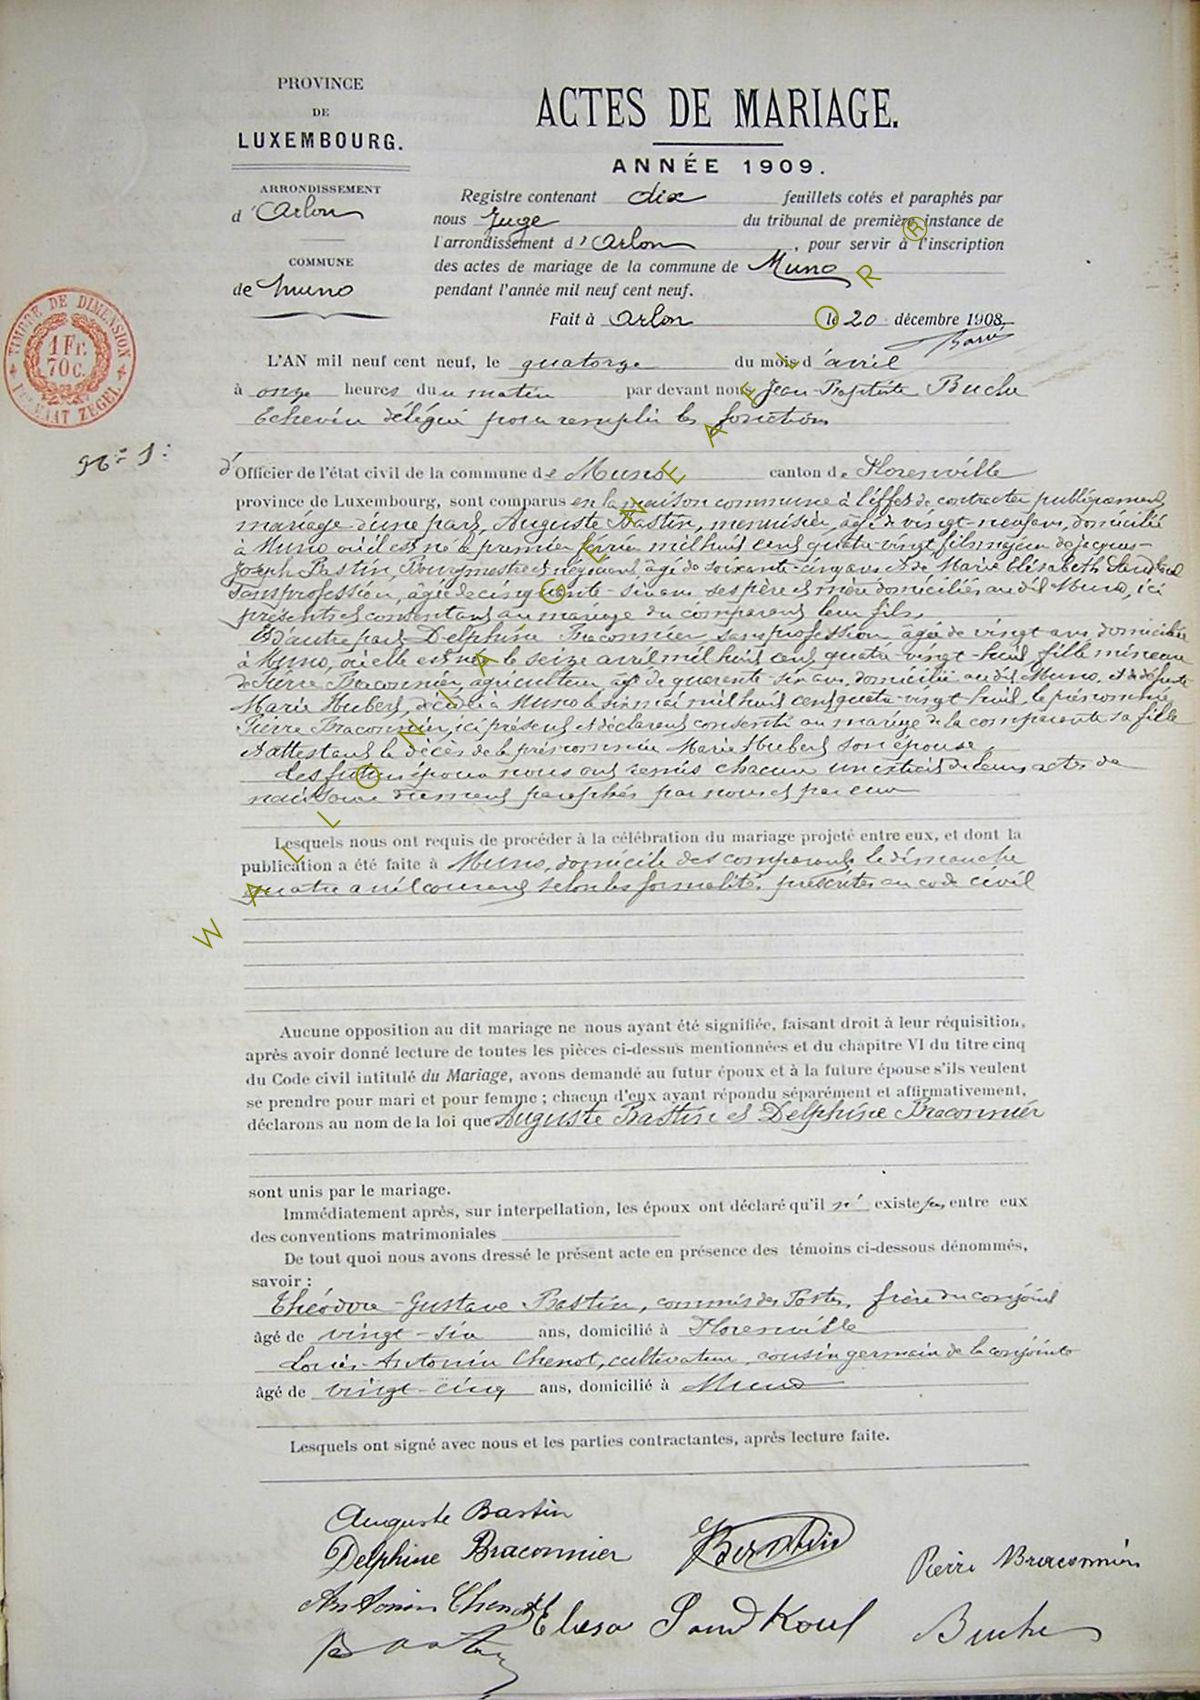 PROVINCE
DE
LUXEMBOURG.
ARRONDISSEMENT
d'Arlon
COMMUNE
de Muno
ACTES DE MARIAGE.
ANNÉE 1909.
Registre contenant dix feuillets cotés et paraphés par
nous Juge du tribunal de première instance de
l'arrondissement d'Arlon, pour servir à l'inscription
des actes de mariage de la commune de Muno
pendant l'année mil neuf cent neuf.
Fait à Arlon le 20 décembre 1908.
TIMBRE DE DIMENSION
1 Fr.
70 c.
STAAT ZEGEL
L'AN mil neuf cent neuf, le quatorze du mois d'avril
à onze heures du matin par devant nous Jean-Baptiste Buche
Echevin délégué pour remplir les fonctions
d'Officier de l'état civil de la commune de Muno canton de Florenville
province de Luxembourg, sont comparus en la maison commune à l'effet de contracter publiquement
mariage d'une part, Auguste Bastin, menuisier, âgé de vingt-neuf ans, domicilié
à Muno où il est né le premier février mil huit cent quatre-vingt fils majeur de Jacques-
Joseph Bastin, Bourgmestre et négociant, âgé de soixante-cinq ans et de Marie Elisabeth
sans profession, âgée de cinquante-six ans ses père et mère domiciliés au dit Muno, ici
présents et consentant au mariage du comparant leur fils,
Et d'autre part Delphine Braconnier, sans profession âgée de vingt ans, domiciliée
à Muno, où elle est née le seize avril mil huit cent quatre-vingt-huit fille mineure
de Pierre Braconnier, agriculteur âgé de quarante-six ans, domicilié au dit Muno, et de défunte
Marie Hubert, décédée à Muno le six mai mil huit cent quatre-vingt-huit, le prénommé
Pierre Braconnier, ici présent et déclarant consentir au mariage de la comparante sa fille
et attestant le décès de la prénommée Marie Hubert son épouse.
Les futurs époux nous ont remis chacun un extrait de leurs actes de
naissance dûment paraphés par nous et par eux
Lesquels nous ont requis de procéder à la célébration du mariage projeté entre eux, et dont la
publication a été faite à Muno, domicile des comparants le dimanche
quatre avril courant selon les formalités prescrites au code civil
Aucune opposition au dit mariage ne nous ayant été signifiée, faisant droit à leur réquisition,
après avoir donné lecture de toutes les pièces ci-dessus mentionnées et du chapitre VI du titre cinq
du Code civil intitulé du Mariage, avons demandé au futur époux et à la future épouse s'ils veulent
se prendre pour mari et pour femme ; chacun d'eux ayant répondu séparément et affirmativement,
déclarons au nom de la loi que Auguste Bastin et Delphine Braconnier
sont unis par le mariage.
Immédiatement après, sur interpellation, les époux ont déclaré qu'il n'existe pas entre eux
des conventions matrimoniales
De tout quoi nous avons dressé le présent acte en présence des témoins ci-dessous dénommés,
savoir :
Théodore-Gustave Bastin, commis des Postes, frère du conjoint
âgé de vingt-six ans, domicilié à Florenville
Louis-Antonin Chenot, cultivateur, cousin germain de la conjointe
âgé de vingt-cinq ans, domicilié à Muno
Lesquels ont signé avec nous et les parties contractantes, après lecture faite.
Auguste Bastin
Delphine Braconnier
Pierre Braconnier
Antonin Chenot
Elisa Sandkoul
Buche
WALLONIA GENEALOR